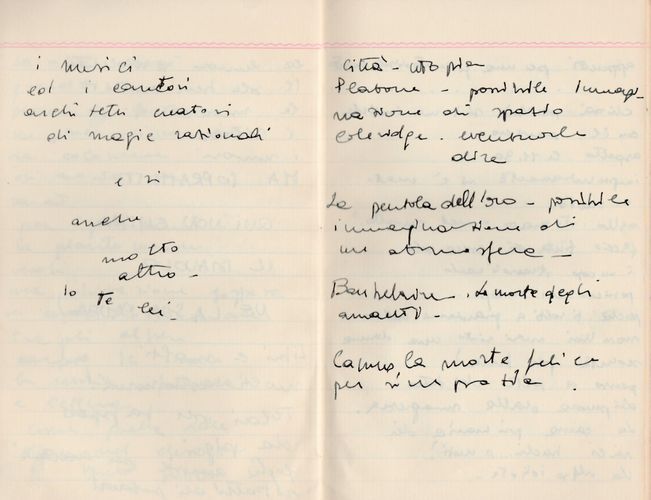 i musici
ed i cantori
architetti creatori
di magie razionali
e si
anche
molto
altro -
Io Te lei -
Città - utopia
Platone - possibile immagi
nazione di spazio
Coleridge. eventuale
dire
La pentola dell'oro - possibile
immaginazione di
un atmosfera -
Baudelaire. La morte degli
amanti -
Camus, la morte felice
per